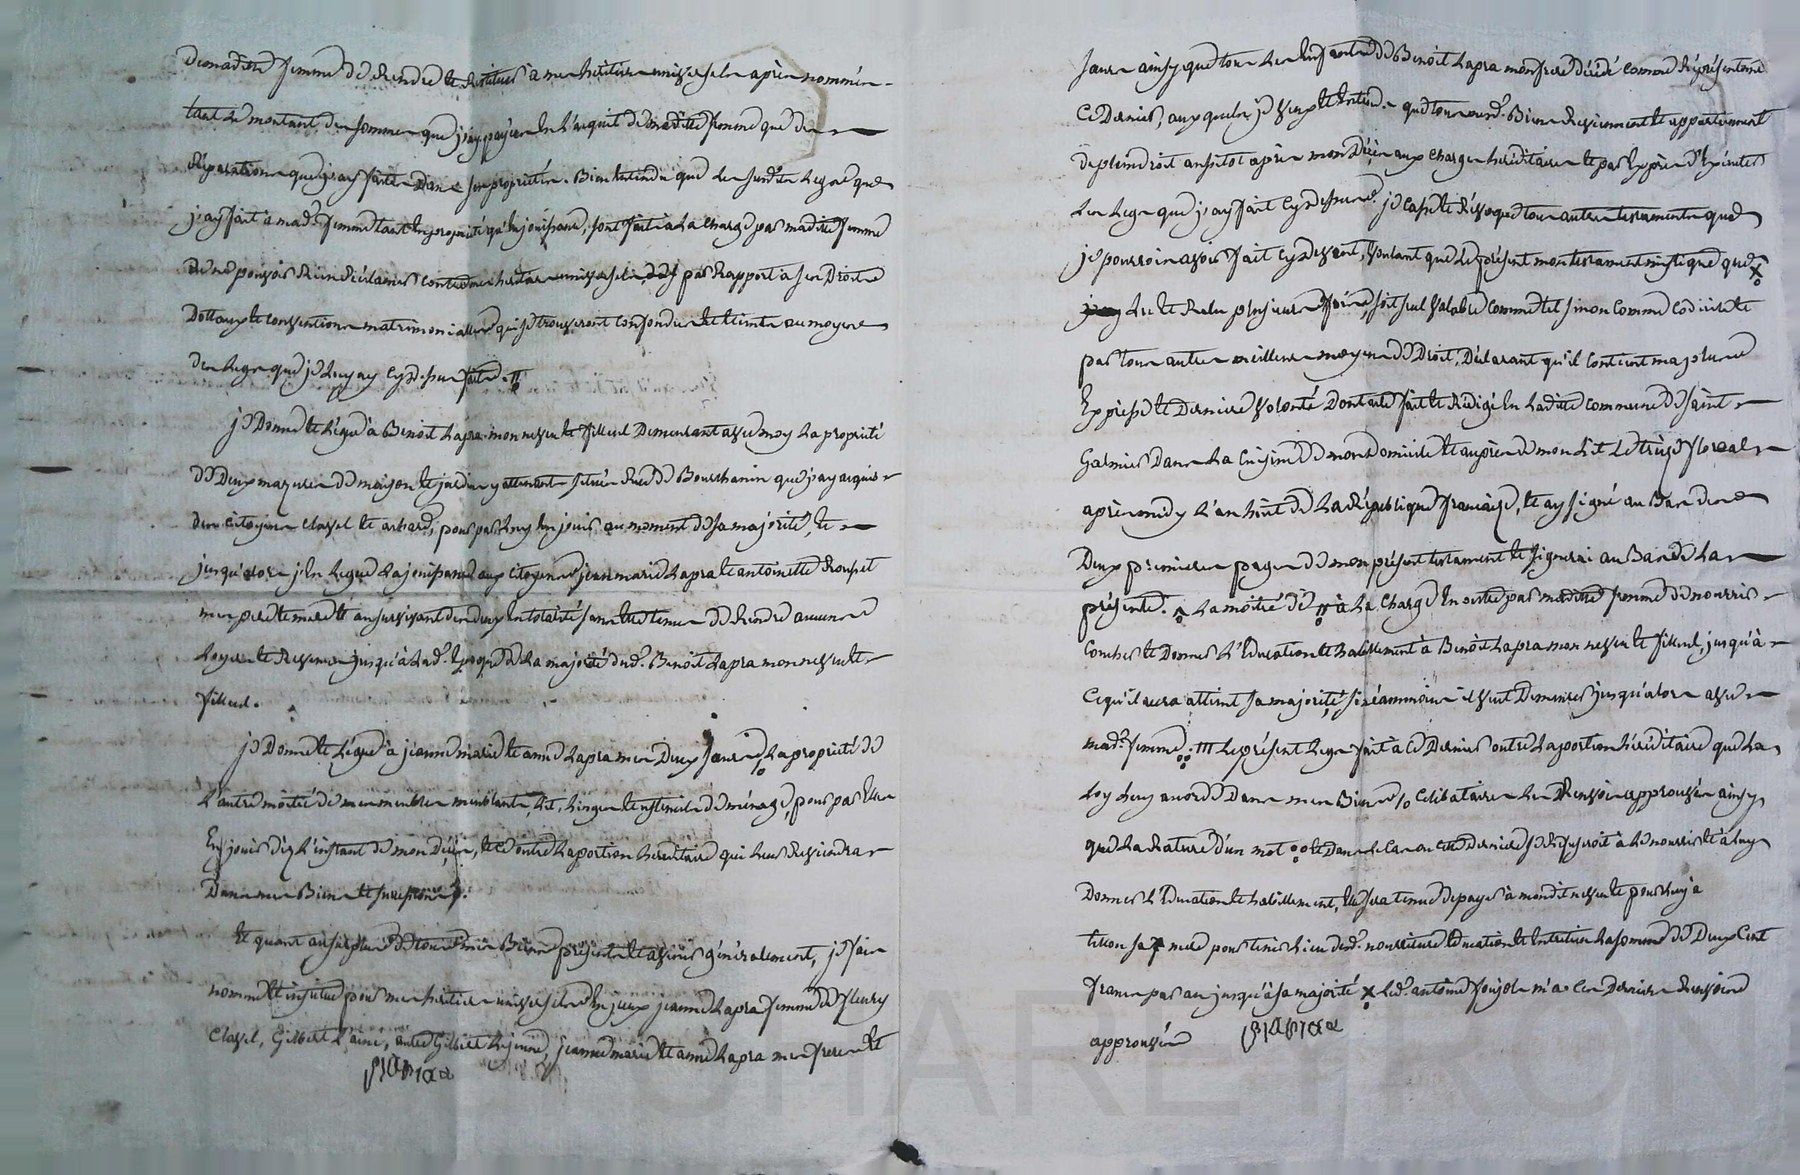 de madite femme de Rendre et Restituer à mes heritiers universels après nommés
tant le montant des sommes que j'ay payées en l'acquit de madite femme que des
Réparations que j'ay faites dans ses propriétés. Bien entendu que les susdits Legs que
j'ay fait à mad.e femme tant en propriété qu'en jouissance, sont faits à la charge par madite femme
de ne pouvoir Rien Réclamer contre mes heritiers universels par Rapport à ses Droits
Dottaux et conventions matrimonialles qui se trouveront confondus et éteints au moyen
des Legs que je luy ay cy dessus faits.
je Donne et Lègue à Benoit Lapra mon neveu et filleul Demeurant avec moy La propriété
de Deux mazures de maison et jardin y attenant situés Rue de Bourchanin que j'ay acquis
des citoyens Clavel et achard, pour par Luy en jouir au moment de sa majorité, et
jusqu'alors j'en Lègue La jouissance aux citoyens jean marie Lapra et antoinette Rousset
mes pere et mere et au survivant des deux en totalité sans etre tenus de Rendre aucuns
Loyers et Revenus jusqu'à Lad.e Epoque de La majorité dud. Benoit Lapra mon neveu et
filleul.
je Donne et Lègue à jeanne marie et anne Lapra mes Deux sœurs, La propriété de
L'autre moitié de mes meubles meublants, Lit, Linges et ustensiles de ménage, pour par Elles
En jouir dèz L'instant de mon Décès, et ce outre La portion hereditaire qui Leur Reviendra
Dans mes Biens et succession.
Et quant au surplus de tous mes Biens présents et avenir généralement, je fais
nomme et institue pour mes heritiers universels jeanne Lapra femme de fleury
Clavel, Gilbert L'ainé, autre Gilbert Le jeune, jeanne marie et anne Lapra mes freres et
sœurs ainsy que tous Les Enfants de Benoit Lapra mon frere décédé comme Représentant
Ce Dernier, auxquels je veux et Entend que tous mesd. Biens Reviennent et appartiennent
de plein droit aussitot après mon Décès aux charges héréditaires et par Exprès d'Exécuter
Les Legs que j'ay fait cy dessus. je casse et Révoque tous autres testaments que
je pourrois avoir fait cy devant, voulant que le présent mon testament mistique que
Lu et Relu plusieurs fois, soit seul valable comme tel sinon comme codicile et
par tous autres meilleurs moyens de Droit, Déclarant qu'il contient ma plus
Expresse et Derniere volonté Dont acte fait et Rédigé En Laditte commune de Saint
Galmier Dans La Cuisine de mon Domicile et auprès de mon Lit Le treize floréal
après midy L'an huit de La République française, et ay signé au Bas des
Deux premieres pages de mon présent testament et signerai au Bas de La
présente. La moitié de à La charge En outre par maditte femme de nourrir
Coucher et Donner L'Education et habillement à Benoit Lapra mon neveu et filleul, jusqu'à
Ce qu'il aura atteint sa majorité, si néanmoins il veut Demeurer jusqu'alors avec
mad.e femme. Le présent Legs fait à Ce Dernier outre La portion héréditaire que La
Loy Leur accorde Dans mes Biens celibataires Les Renvois approuvés ainsy
que La Rature d'un mot et Dans Le Cas ou cette Derniere se Refuseroit à Le nourrir et à Luy
Donner L'Education et habillement, Elle sera tenue de payer à mondit neveu et pour Luy à
sa mere pour tenir Lieu desd. nourriture Education et Entretien La somme de Deux Cent
francs par an jusqu'à sa majorité Led. antoine m'a Les Derniers Renvois
approuvés